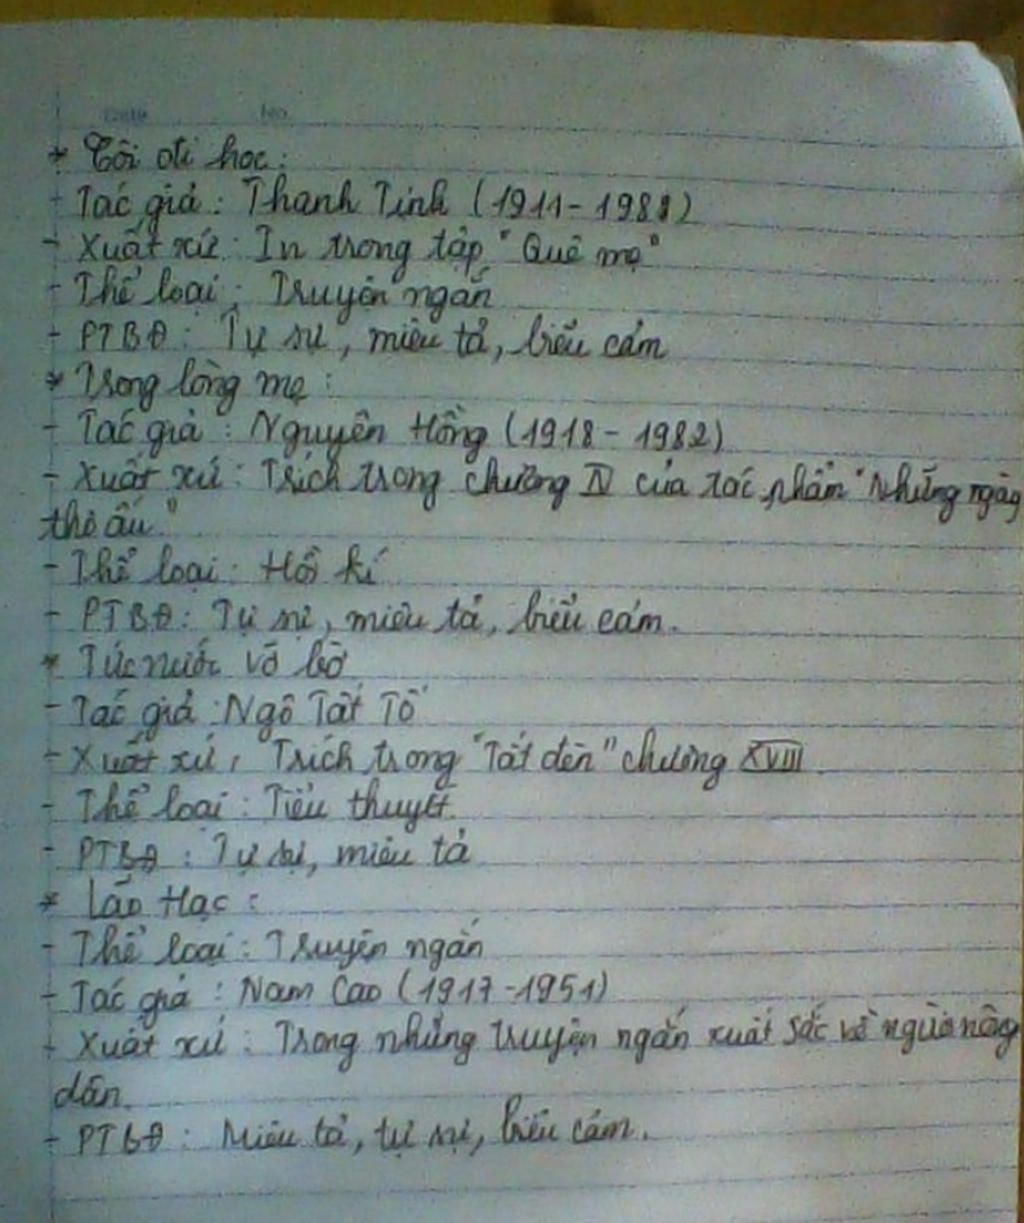 Date No.
* Tôi đi học:
- Tác giả: Thanh Tịnh (1911-1988)
- Xuất xứ: In trong tập "Quê mẹ"
- Thể loại: Truyện ngắn
- PTBĐ: Tự sự, miêu tả, biểu cảm
* Trong lòng mẹ:
- Tác giả: Nguyên Hồng (1918-1982)
- Xuất xứ: Trích trong chương IV của tác phẩm "Những ngày
thơ ấu"
- Thể loại: Hồi kí
- PTBĐ: Tự sự, miêu tả, biểu cảm.
* Tức nước vỡ bờ
- Tác giả: Ngô Tất Tố
- Xuất xứ: Trích trong "Tắt đèn" chương XVIII.
- Thể loại: Tiểu thuyết.
- PTBĐ: Tự sự, miêu tả
* Lão Hạc:
- Thể loại: Truyện ngắn
- Tác giả: Nam Cao (1917-1951)
- Xuất xứ: Trong những truyện ngắn xuất sắc về người nông
dân.
- PTBĐ: Miêu tả, tự sự, biểu cảm.